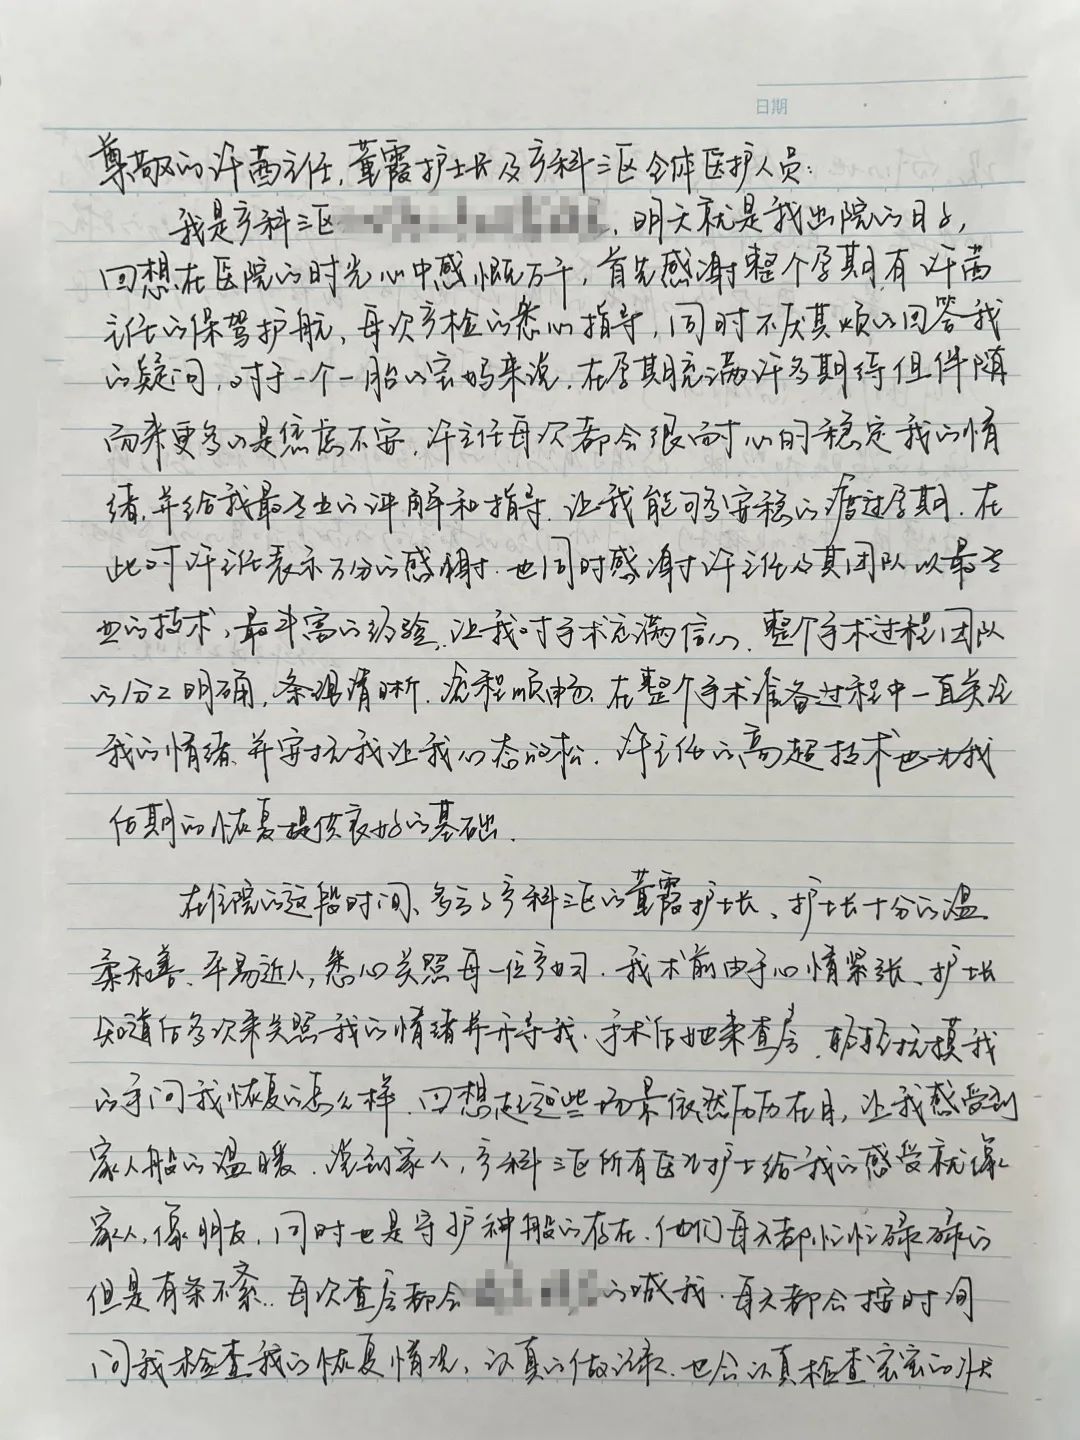 日期
尊敬的许茜主任，董霞护士长及产科三区全体医护人员：
我是产科三区，明天就是我出院的日子，
回想在医院的时光心中感慨万千，首先感谢整个孕期有许茜
主任的保驾护航，每次产检的悉心指导，同时不厌其烦的回答我
的疑问，对于一个一胎的宝妈来说，在孕期充满许多期待但伴随
而来更多的是焦虑不安，许主任每次都会很耐心的稳定我的情
绪，并给我最专业的讲解和指导，让我能够安稳的度过孕期，在
此对许主任表示万分的感谢，也同时感谢许主任及其团队以最专
业的技术，最丰富的经验，让我对手术充满信心，整个手术过程团队
的分工明确，条理清晰，流程顺畅，在整个手术准备过程中一直关注
我的情绪，并安抚我让我心态放松，许主任的高超技术也为我
后期的恢复提供良好的基础。
在住院的这段时间，多亏了产科三区的董霞护士长，护士长十分的温
柔和善、平易近人，悉心关照每一位产妇，我术前由于心情紧张，护士长
知道后多次来关照我的情绪并开导我，手术后她来查房，轻轻抚摸我
的手问我恢复的怎么样，回想起这些场景依然历历在目，让我感受到
家人般的温暖，说到家人，产科三区所有医生护士给我的感受就像
家人，像朋友，同时也是守护神般的存在，他们每天都忙忙碌碌的
但是有条不紊，每次查房都会的喊我，每天都会按时间
问我检查我的恢复情况，认真的做记录，也会认真检查宝宝的状